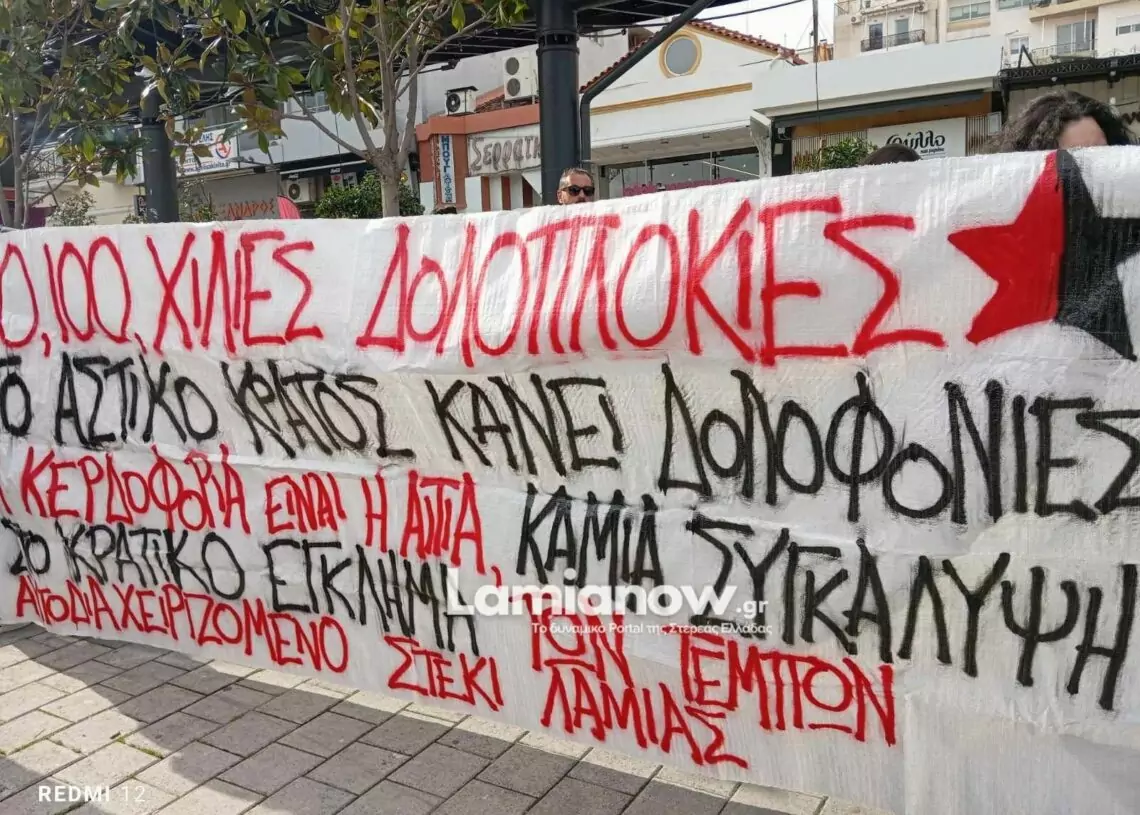 ΣΕΡΡΑΙ
φύλλο
ΞΑΜΑΡΟΣ
0,100, ΧΙΛΙΕΣ ΔΟΛΟΠΛΟΚΙΕΣ
ΤΟ ΑΣΤΙΚΟ ΚΡΑΤΟΣ ΚΑΝΕΙ ΔΟΛΟΦΟΝΙΕΣ
Η ΚΕΡΔΟΦΟΡΙΑ ΕΙΝΑΙ Η ΑΙΤΙΑ, ΚΑΜΙΑ ΣΥΓΚΑΛΥΨΗ
ΣΤΟ ΚΡΑΤΙΚΟ ΕΓΚΛΗΜΑ ΤΩΝ ΤΕΜΠΩΝ
ΑΥΤΟΔΙΑΧΕΙΡΙΖΟΜΕΝΟ ΣΤΕΚΙ ΛΑΜΙΑΣ
Lamianow.gr
Το δυναμικό Portal της Στερεάς Ελλάδας
REDMI 12